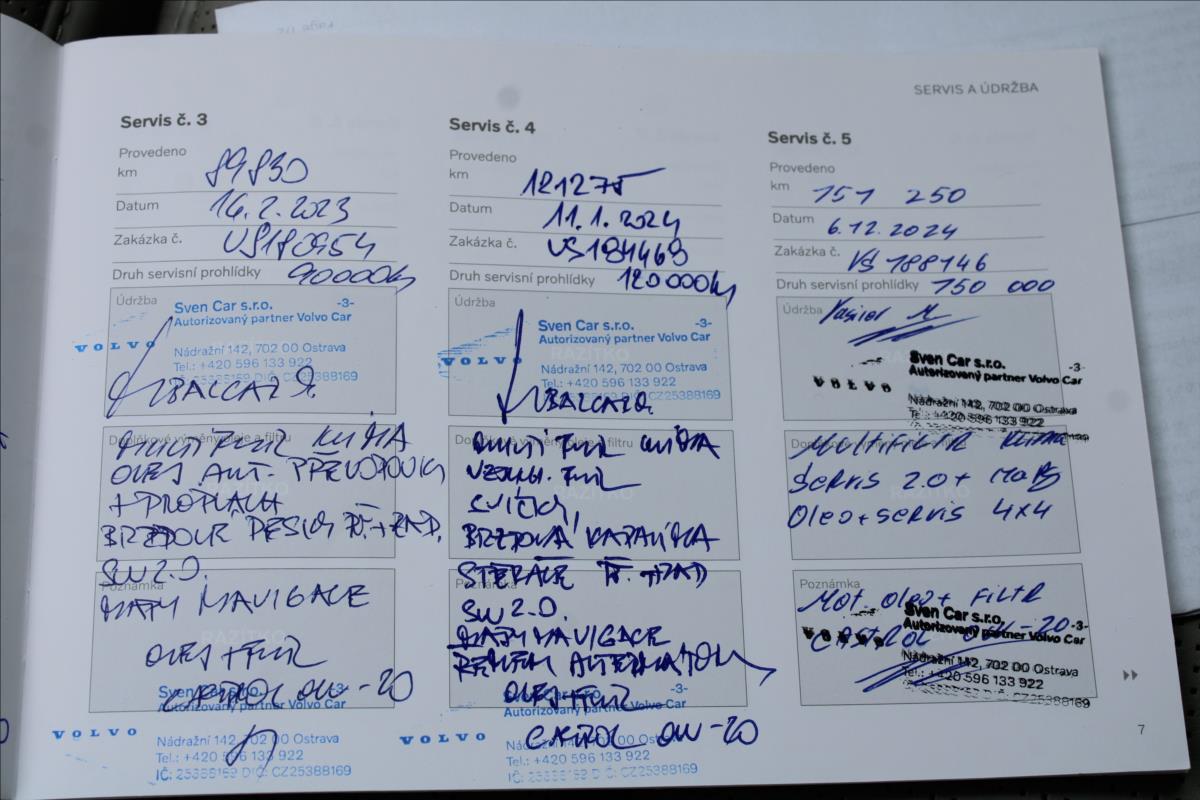 SERVIS A ÚDRŽBA
Servis č. 3
Provedeno
km 89830
Datum 16.2.2023
Zakázka č. VS180954
Druh servisní prohlídky 90000km
Údržba
Sven Car s.r.o. -3-
Autorizovaný partner Volvo Car
VOLVO
Nádražní 142, 702 00 Ostrava
Tel.: +420 596 133 922
IČ: 25388169 DIČ: CZ25388169
RAZÍTKO
Doplňkové výměny oleje a filtru
MULTIFILTR KLIMA
OLEJ AUT. PŘEVODOVKY
+ PROPLACH
BRZDOVÉ DESKY PŘ.+ZAD.
SW 2.0.
Poznámka
MAPY NAVIGACE
RAZÍTKO
OLEJ+FILTR
CASTROL 0W-20
Sven Car s.r.o. -3-
Autorizovaný partner Volvo Car
VOLVO
Nádražní 142, 702 00 Ostrava
Tel.: +420 596 133 922
IČ: 25388169 DIČ: CZ25388169
Servis č. 4
Provedeno
km 121275
Datum 11.1.2024
Zakázka č. VS184469
Druh servisní prohlídky 120000km
Údržba
Sven Car s.r.o. -3-
Autorizovaný partner Volvo Car
RAZÍTKO
VOLVO
Nádražní 142, 702 00 Ostrava
Tel.: +420 596 133 922
DIČ: CZ25388169
Doplňkové výměny oleje a filtru
MULTIFILTR KLIMA
VZDUCH. FILTR
SVÍČKY,
RAZÍTKO
BRZDOVÁ KAPALINA
STĚRAČE PŘ.+ZAD
Poznámka
SW 2.0.
MAPY NAVIGACE
ŘEMEN ALTERNÁTORU
OLEJ+FILTR
CASTROL 0W-20
Sven Car s.r.o. -3-
Autorizovaný partner Volvo Car
VOLVO
Nádražní 142, 702 00 Ostrava
Tel.: +420 596 133 922
IČ: 25388169 DIČ: CZ25388169
Servis č. 5
Provedeno
km 151 250
Datum 6.12.2024
Zakázka č. VS 188146
Druh servisní prohlídky 150 000
Údržba
Sven Car s.r.o. -3-
Autorizovaný partner Volvo Car
VOLVO
Nádražní 142, 702 00 Ostrava
Tel.: +420 596 133 922
MULTIFILTR KLIMA
SERVIS 2.0 + MAPS
RAZÍTKO
OLEO + SERVIS 4x4
Poznámka
MOT. OLEO + FILTR
CASTROL 0W-20
Sven Car s.r.o. -3-
Autorizovaný partner Volvo Car
VOLVO
Nádražní 142, 702 00 Ostrava
Tel.: +420 596 133 922
IČ: 25388169 DIČ: CZ25388169
7